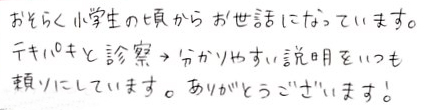 おそらく小学生の頃からお世話になっています。
テキパキと診察→分かりやすい説明をいつも
頼りにしています。ありがとうございます!